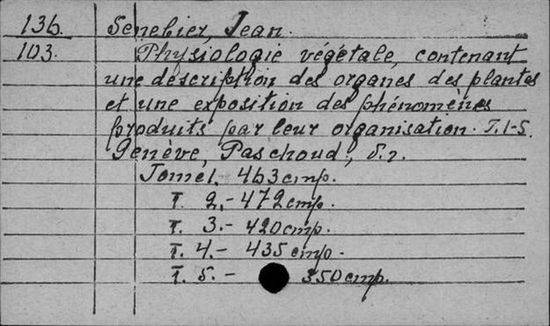 136. Senebier, Jean.
103. Physiologie végétale, contenant
une déscription des organes des plantes
et une exposition des phénomènes
produits par leur organisation. T. 1-5.
Genève, Paschoud, S.
Tome 1. 463 стр.
T. 2.- 472 стр.
T. 3.- 420 стр.
T. 4.- 435 стр.
T. 5.- 350 стр.